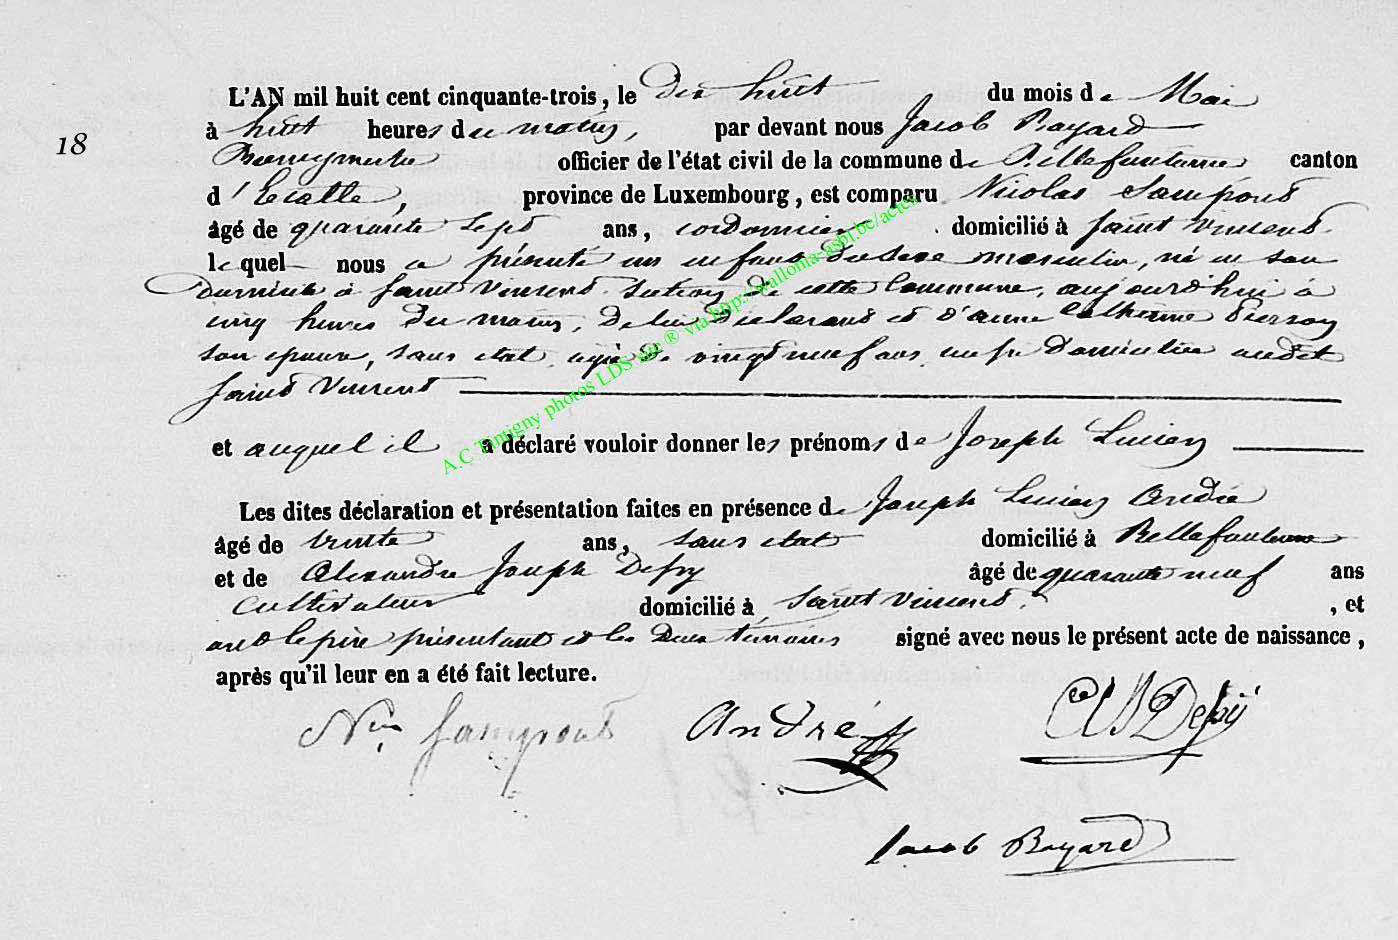 L'AN mil huit cent cinquante-trois, le dix huit du mois de Mai
18
à huit heures du matin, par devant nous Jacob Bayard
Bourgmestre officier de l'état civil de la commune de Bellefontaine canton
d'Etalle, province de Luxembourg, est comparu Nicolas Sampont
âgé de quarante sept ans, cordonnier domicilié à Saint Vincent
lequel nous a présenté un enfant du sexe masculin, né en son
domicile à Saint Vincent section de cette Commune, aujourd'hui à
cinq heures du matin, de lui déclarant et d'anne Catherine Pierson
son épouse, sans état, agée de vingt neuf ans, aussi domiciliée audit
Saint Vincent
et auquel il a déclaré vouloir donner les prénoms de Joseph Lucien
Les dites déclaration et présentation faites en présence de Joseph Lucien André
âgé de trente ans, sans état domicilié à Bellefontaine
et de Alexandre Joseph Defoy âgé de quarante neuf ans
Cultivateur domicilié à Saint Vincent, et
ont le père présentant et les deux témoins signé avec nous le présent acte de naissance,
après qu'il leur en a été fait lecture.
Nas Sampont André Defoÿ
Jacob Bayard
A.C Tintigny photos LDS site ® via http://walloma-asbl.be/actes